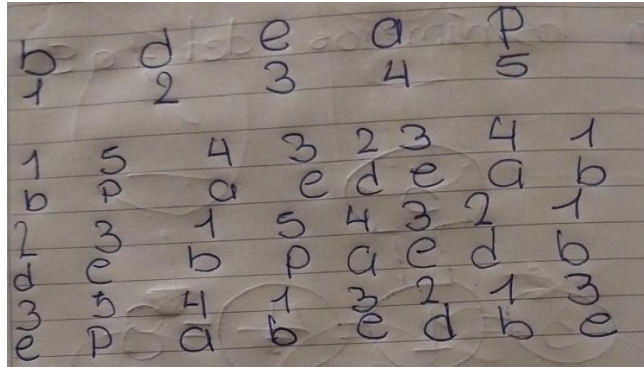 b d e a p
1 2 3 4 5
1 5 4 3 2 3 4 1
b p a e d e a b
2 3 1 5 4 3 2 1
d e b p a e d b
3 5 4 1 3 2 1 3
e p a b e d b e